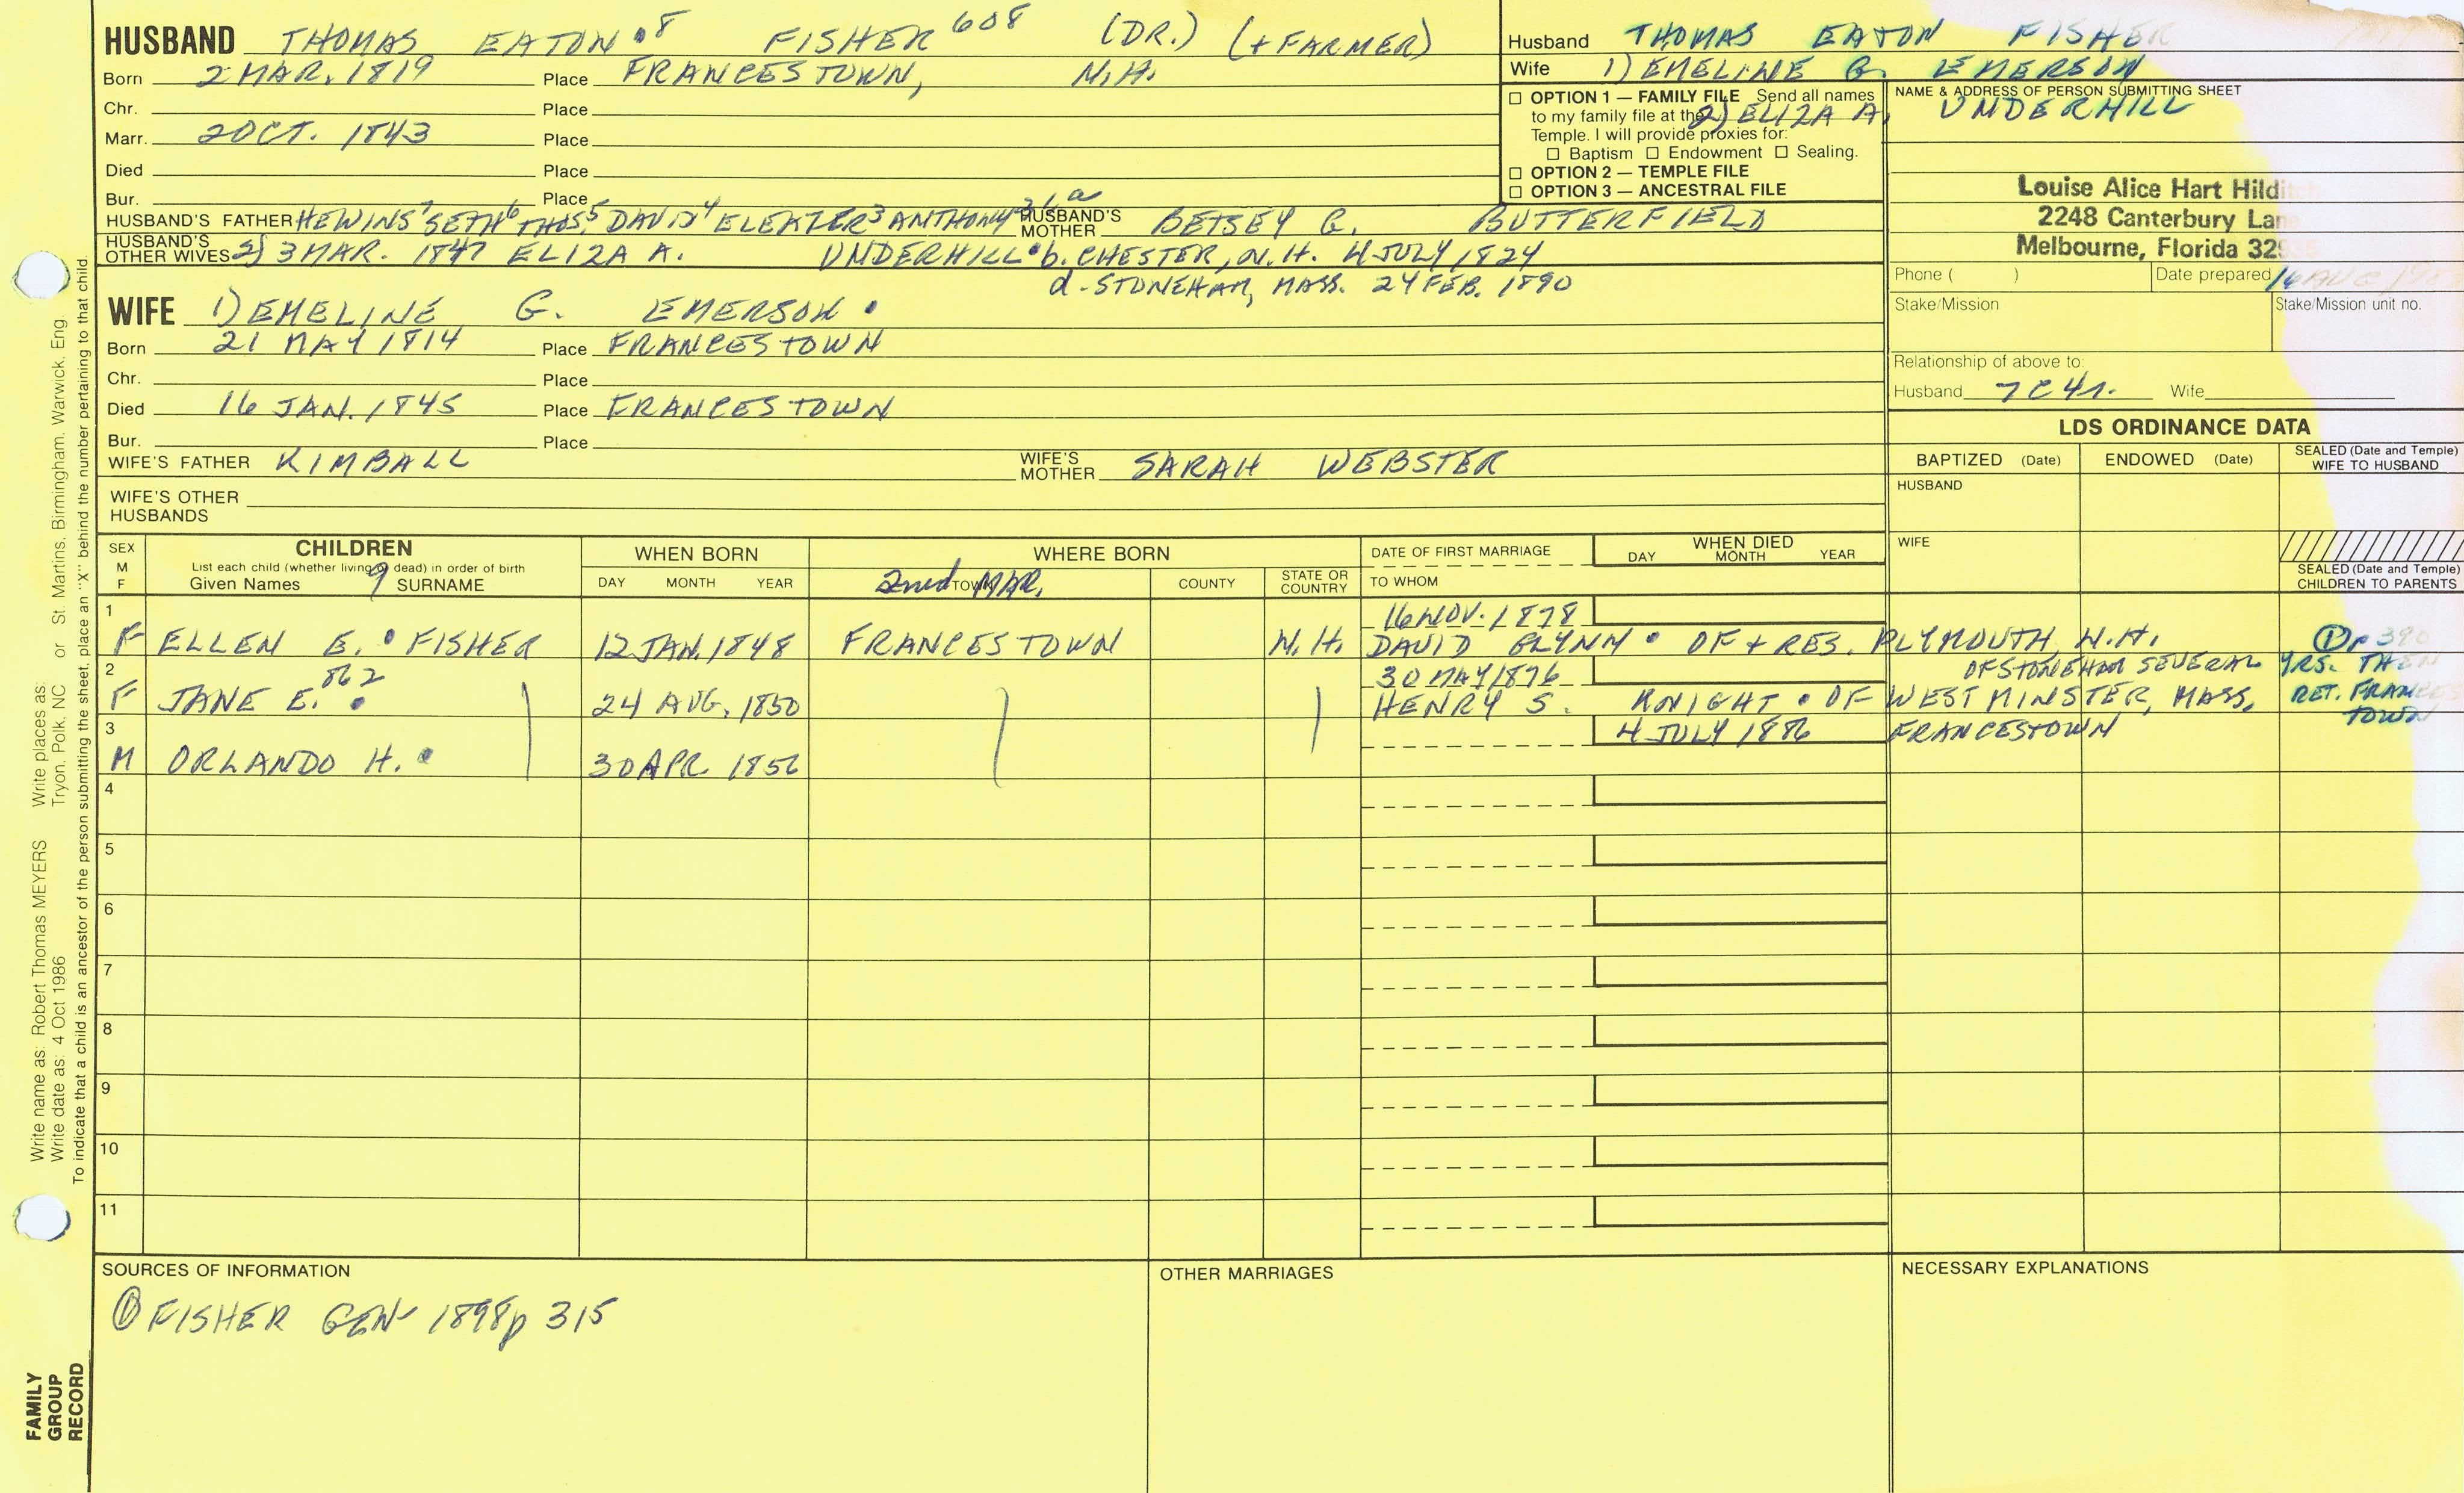 HUSBAND THOMAS EATON 8 FISHER 608 (DR.) (+ FARMER)
Born 2 MAR. 1819 Place FRANCESTOWN, N.H.
Chr. Place
Marr. 2 OCT. 1843 Place
Died Place
Bur. Place
HUSBAND'S FATHER HEWINS 7 SETH 6 THOS. 5 DAVID 4 ELEAZER 3 ANTHONY HUSBAND'S MOTHER BETSEY G. BUTTERFIELD
HUSBAND'S OTHER WIVES 2) 3 MAR. 1847 ELIZA A. UNDERHILL b. CHESTER, N.H. 4 JULY 1824
d. STONEHAM, MASS. 24 FEB. 1890
Husband THOMAS EATON FISHER
Wife 1) EMELINE G. EMERSON
2) ELIZA A. UNDERHILL
☐ OPTION 1 — FAMILY FILE Send all names
to my family file at the
Temple. I will provide proxies for:
☐ Baptism ☐ Endowment ☐ Sealing.
☐ OPTION 2 — TEMPLE FILE
☐ OPTION 3 — ANCESTRAL FILE
NAME & ADDRESS OF PERSON SUBMITTING SHEET
Louise Alice Hart
2248 Canterbury
Melbourne, Florida
Phone ( ) Date prepared
Stake/Mission Stake/Mission unit no.
Relationship of above to:
Husband 7C4r. Wife
WIFE 1) EMELINE G. EMERSON
Born 21 MAY 1814 Place FRANCESTOWN
Chr. Place
Died 16 JAN. 1845 Place FRANCESTOWN
Bur. Place
WIFE'S FATHER KIMBALL WIFE'S MOTHER SARAH WEBSTER
WIFE'S OTHER HUSBANDS
LDS ORDINANCE DATA
BAPTIZED (Date) ENDOWED (Date) SEALED (Date and Temple) WIFE TO HUSBAND
HUSBAND
WIFE
SEALED (Date and Temple) CHILDREN TO PARENTS
SEX M F
CHILDREN
List each child (whether living or dead) in order of birth
Given Names 9 SURNAME
WHEN BORN
DAY MONTH YEAR
WHERE BORN
TOWN 2nd MAR. COUNTY STATE OR COUNTRY
DATE OF FIRST MARRIAGE
TO WHOM
WHEN DIED
DAY MONTH YEAR
1 16 NOV. 1878
F ELLEN E. FISHER 12 JAN. 1848 FRANCESTOWN N.H. DAVID GLYNN OF + RES. PLYMOUTH N.H.
2 862 30 MAY 1876 OF STONEHAM SEVERAL YRS. THEN
F JANE E. 24 AUG. 1850 HENRY S. KNIGHT OF WESTMINSTER, MASS. RET.
3 4 JULY 1886 FRANCESTOWN
M ORLANDO H. 30 APR. 1856
4
5
6
7
8
9
10
11
SOURCES OF INFORMATION
① FISHER GEN 1898 p 315
OTHER MARRIAGES
NECESSARY EXPLANATIONS
Write name as: Robert Thomas MEYERS Write places as: Tryon, Polk, NC or St. Martins, Birmingham, Warwick, Eng.
Write date as: 4 Oct 1986
To indicate that a child is an ancestor of the person submitting the sheet, place an "X" behind the number pertaining to that child
FAMILY
GROUP
RECORD